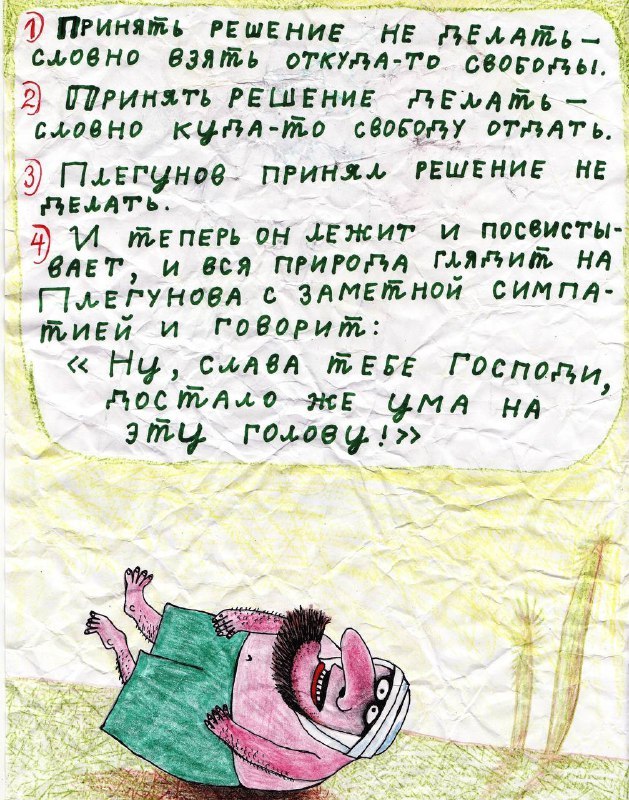 1) Принять решение не делать —
словно взять откуда-то свободы.
2) Принять решение делать —
словно куда-то свободу отдать.
3) Плегунов принял решение не
делать.
4) И теперь он лежит и посвисты-
вает, и вся природа глядит на
Плегунова с заметной симпа-
тией и говорит:
« Ну, слава тебе Господи,
достало же ума на
эту голову!»